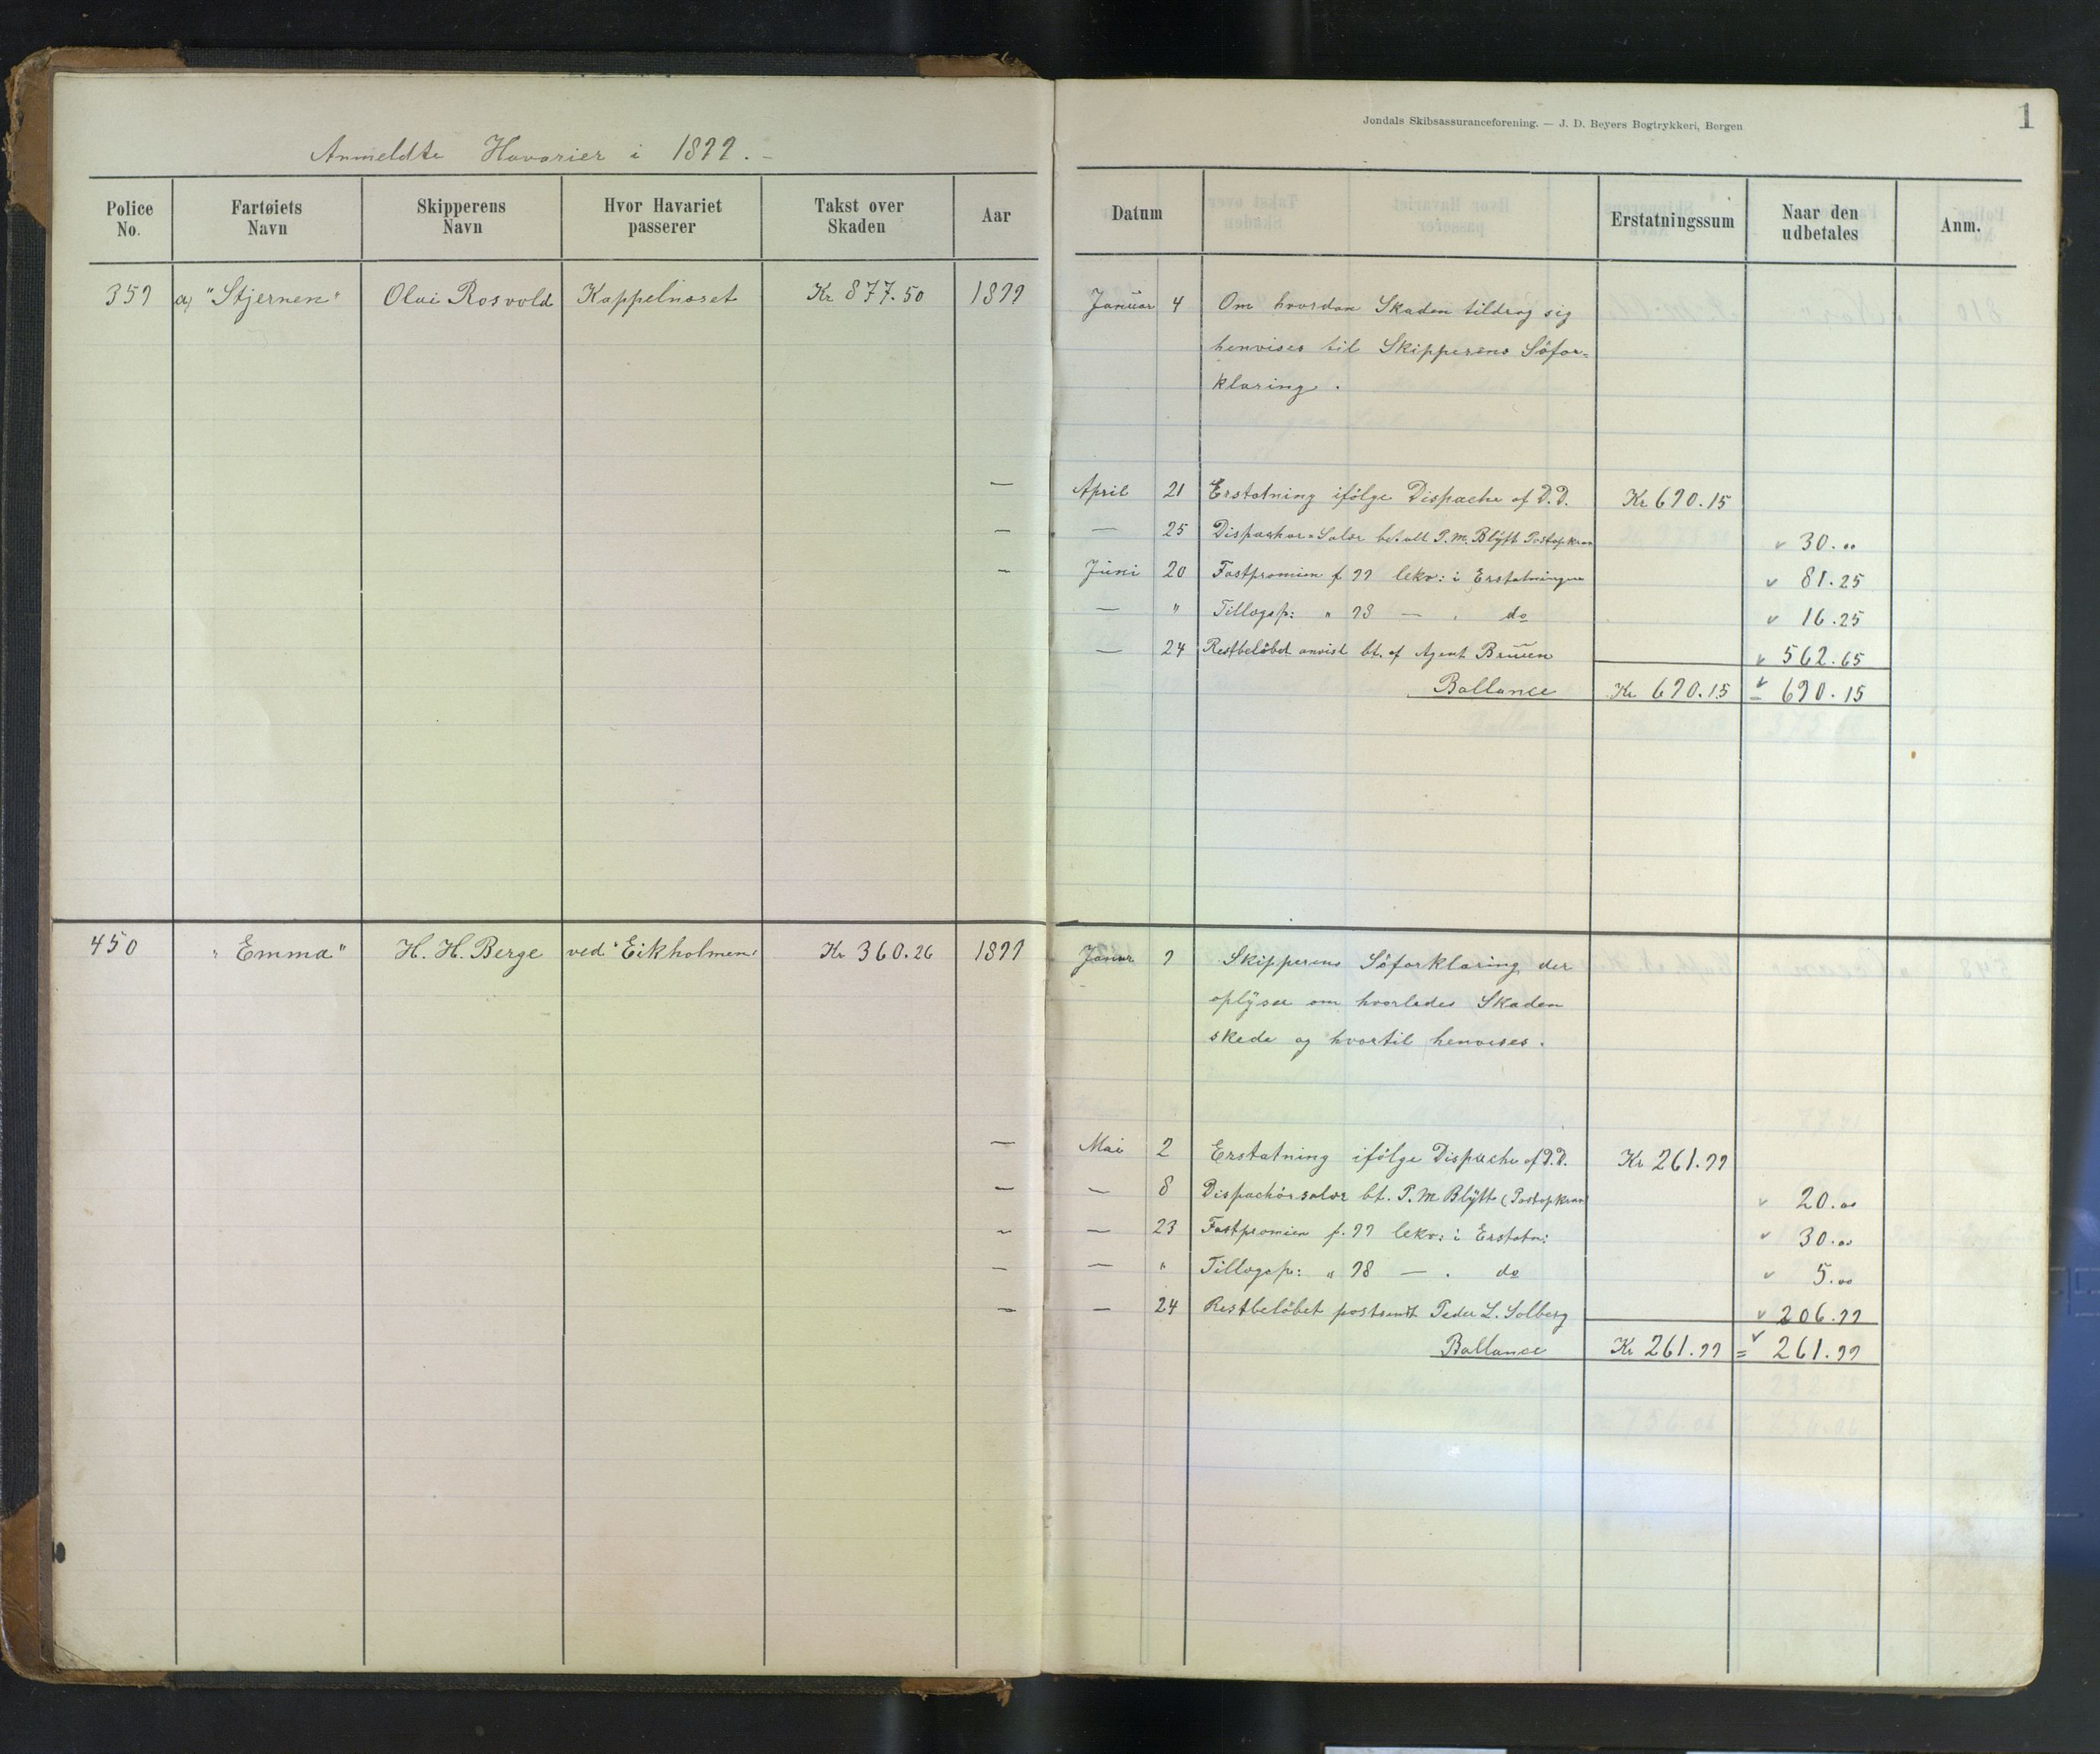 Anmeldte Havarier i 1899. -
Police No.
Fartøiets Navn
Skipperens Navn
Hvor Havariet passerer
Takst over Skaden
Aar
359 a) "Stjernen" Olai Rosvold Kappelnæset Kr 877.50 1899
450 "Emma" H. H. Berge ved "Eikholmen" Kr 360.26 1899
Jondals Skibsassuranceforening. — J. D. Beyers Bogtrykkeri, Bergen
1
Datum
Erstatningssum
Naar den udbetales
Anm.
Januar 4 Om hvordan Skaden tildrog sig
henvises til Skipperens Söfor=
klaring.
— April 21 Erstatning ifölge Dispache af D.D. Kr 690.15
— — 25 Dispachør=Salær betalt P. M. Blÿtt Postopkrav 30.00
— Juni 20 Fastpræmien f 99 lekv: i Erstatningen 81.25
— " Tillægsp: " 98 — . do 16.25
— 24 Restbelöbet anvist bt. af Agent Bruen 562.65
Ballance Kr 690.15 = 690.15
Januar 9 Skipperens Söforklaring der
oplÿser om hvorledes Skaden
skede og hvortil henvises.
— Mai 2 Erstatning ifölge Dispache af D.D. Kr 261.99
— — 8 Dispachörsalær bt. P. M Blÿtt (Postopkrav) 20.00
— — 23 Fastpræmien f. 99 lekv: i Erstatn: 30.00
— — " Tillægsp: " 98 — . do 5.00
— — 24 Restbelöbet postsendt Peder L. Solberg 206.99
Ballance Kr 261.99 = 261.99